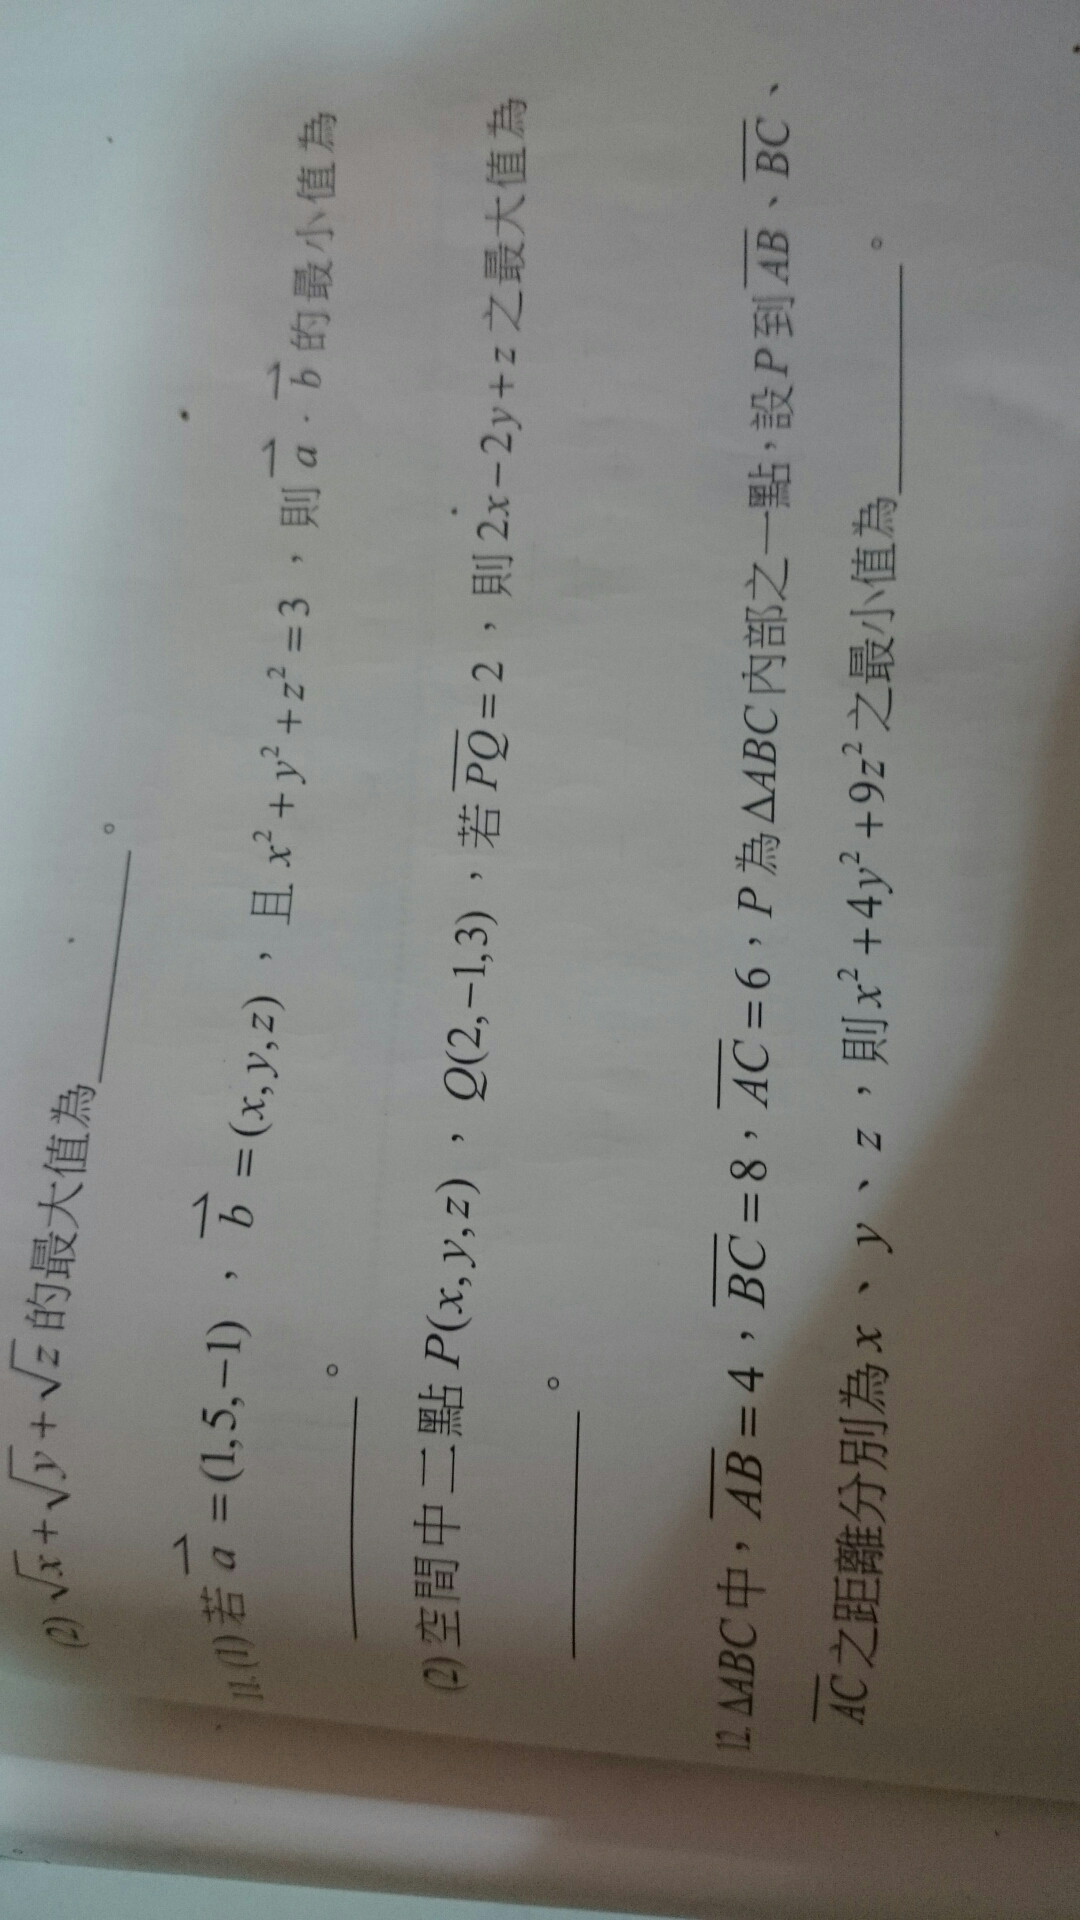 (2) √x+√y+√z 的最大值為________。
11.(1)若 a⃗ =(1,5,−1)，b⃗ =(x,y,z)，且 x²+y²+z²=3，則 a⃗·b⃗ 的最小值為
________。
(2)空間中二點 P(x,y,z)，Q(2,−1,3)，若 P̅Q̅=2，則 2x−2y+z 之最大值為
________。
12. ΔABC中，A̅B̅=4，B̅C̅=8，A̅C̅=6，P為ΔABC內部之一點，設P到A̅B̅、B̅C̅、
A̅C̅之距離分別為x、y、z，則x²+4y²+9z²之最小值為________。